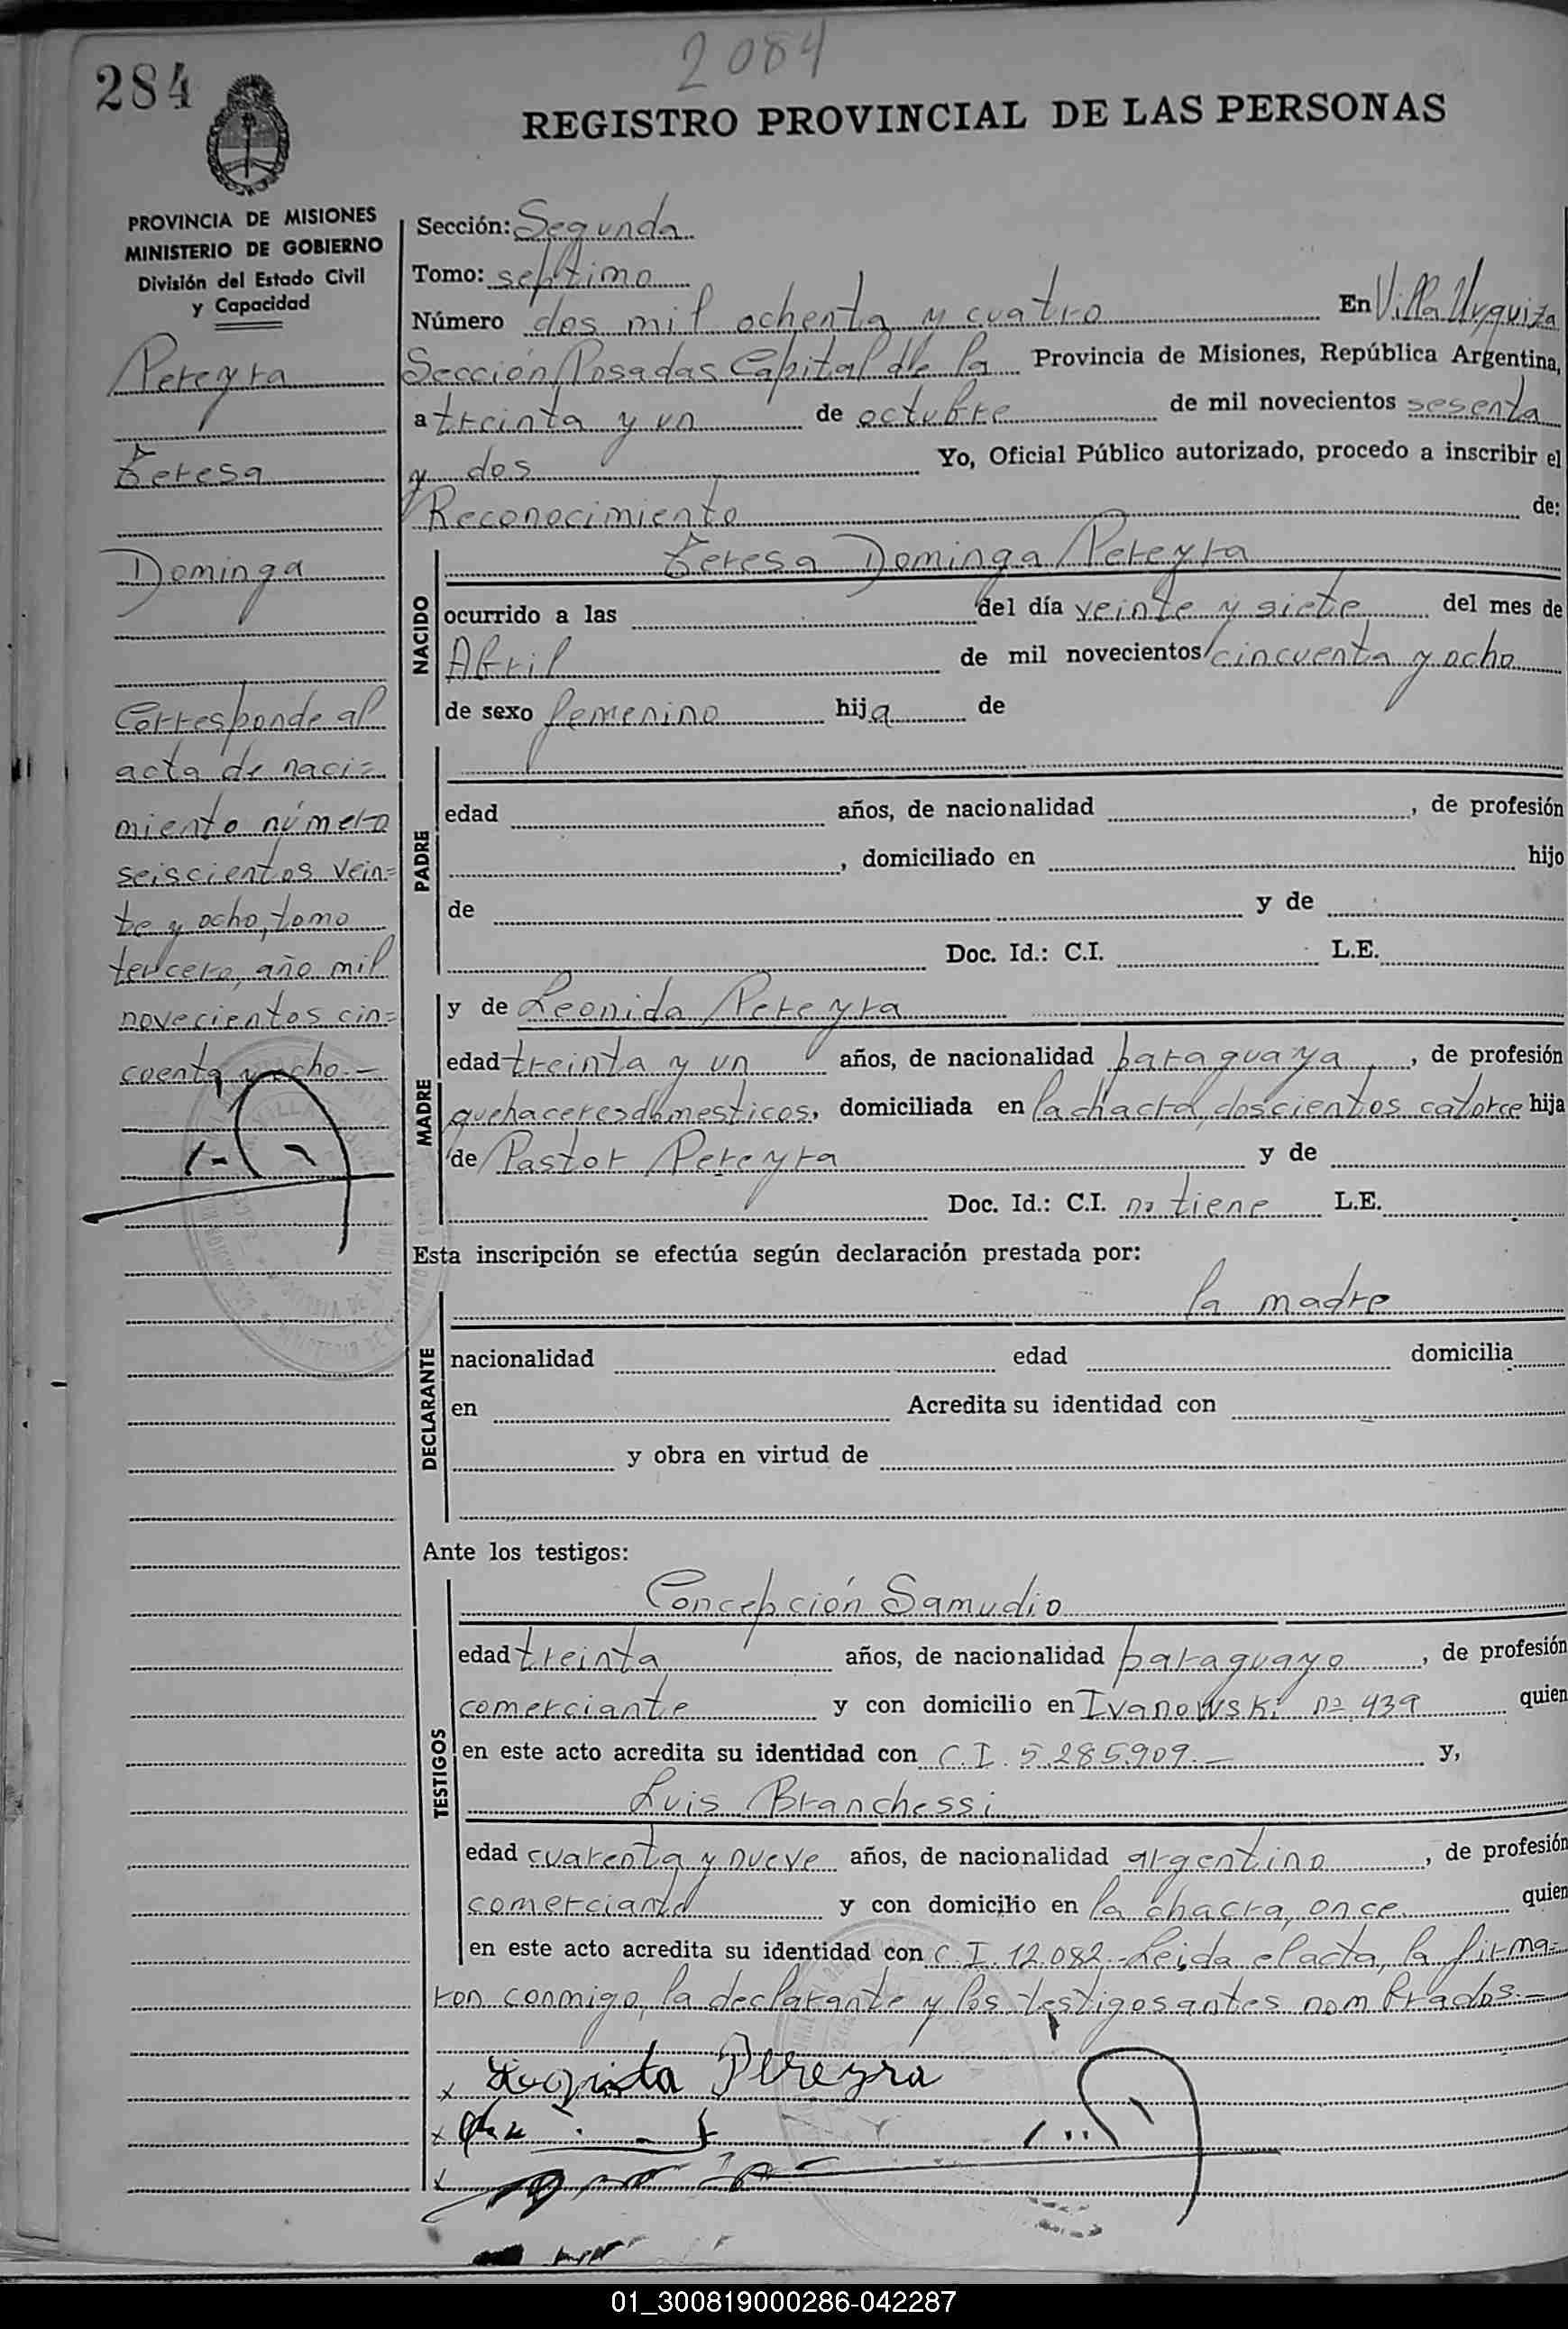 2084
284
REGISTRO PROVINCIAL DE LAS PERSONAS
PROVINCIA DE MISIONES
MINISTERIO DE GOBIERNO
División del Estado Civil
y Capacidad
Pereyra
Teresa
Dominga
Corresponde al
acta de naci=
miento número
seiscientos vein=
te y ocho, tomo
tercero, año mil
novecientos cin=
cuenta y ocho.-
Sección: Segunda
Tomo: septimo
Número dos mil ochenta y cuatro En Villa Urquiza
Sección Posadas Capital de la Provincia de Misiones, República Argentina,
a treinta y un de octubre de mil novecientos sesenta
y dos Yo, Oficial Público autorizado, procedo a inscribir el
Reconocimiento de:
NACIDO
Teresa Dominga Pereyra
ocurrido a las del día veinte y siete del mes de
Abril de mil novecientos cincuenta y ocho
de sexo femenino hija de
PADRE
edad años, de nacionalidad , de profesión
, domiciliado en hijo
de y de
Doc. Id.: C.I. L.E.
MADRE
y de Leonida Pereyra
edad treinta y un años, de nacionalidad paraguaya, de profesión
quehaceres domesticos, domiciliada en la chacra, doscientos catorce hija
de Pastor Pereyra y de
Doc. Id.: C.I. no tiene L.E.
Esta inscripción se efectúa según declaración prestada por:
DECLARANTE
la madre
nacionalidad edad domicilia
en Acredita su identidad con
y obra en virtud de
Ante los testigos:
TESTIGOS
Concepción Samudio
edad treinta años, de nacionalidad paraguayo, de profesión
comerciante y con domicilio en Ivanowski nº 439 quien
en este acto acredita su identidad con C.I. 5.285.909.- y,
Luis Branchessi
edad cuarenta y nueve años, de nacionalidad argentino, de profesión
comerciante y con domicilio en la chacra, once quien
en este acto acredita su identidad con C.I. 12.082.- Leida el acta, la firma=
ron conmigo, la declarante y los testigos antes nombrados.-
x Pereyra
x
x
01_300819000286-042287